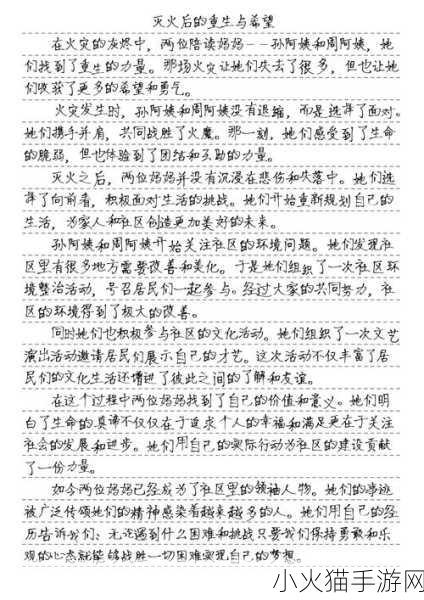 灭火后的重生与希望
在火灾的灰烬中，两位陪读妈妈——孙阿姨和周阿姨，她
们找到了重生的力量。那场火灾让她们失去了很多，但也让她
们收获了更多的希望和勇气。
火灾发生时，孙阿姨和周阿姨没有退缩，而是选择了面对。
她们携手并肩，共同战胜了火魔。那一刻，她们感受到了生命
的脆弱，但也体验到了团结和互助的力量。
灭火之后，两位妈妈并没有沉浸在悲伤和失落中。她们选
择了向前看，积极面对生活的挑战。她们开始重新规划自己的
生活，为家人和社区创造更加美好的未来。
孙阿姨和周阿姨开始关注社区的环境问题。她们发现社
区里有很多地方需要改善和美化。于是她们组织了一次社区环
境整治活动，号召居民们一起参与。经过大家的共同努力，社
区的环境得到了极大的改善。
同时她们也积极参与社区的文化活动。她们组织了一次文艺
演出活动邀请居民们展示自己的才艺。这次活动不仅丰富了居
民们的文化生活还增进了彼此之间的了解和友谊。
在这个过程中两位妈妈找到了自己的价值和意义。她们明
白了生命的真谛不仅仅在于追求个人的幸福和满足更在于关注
社会的发展和进步。她们用自己的实际行动为社区的建设贡献
了一份力量。
如今两位妈妈已经成为了社区里的领袖人物。她们的事迹
被广泛传颂她们的精神感染着越来越多的人。她们用自己的经
历告诉我们：无论遇到什么困难和挑战只要我们保持勇敢和乐
观的心态就能够战胜一切困难实现自己的梦想。
小火猫手游网